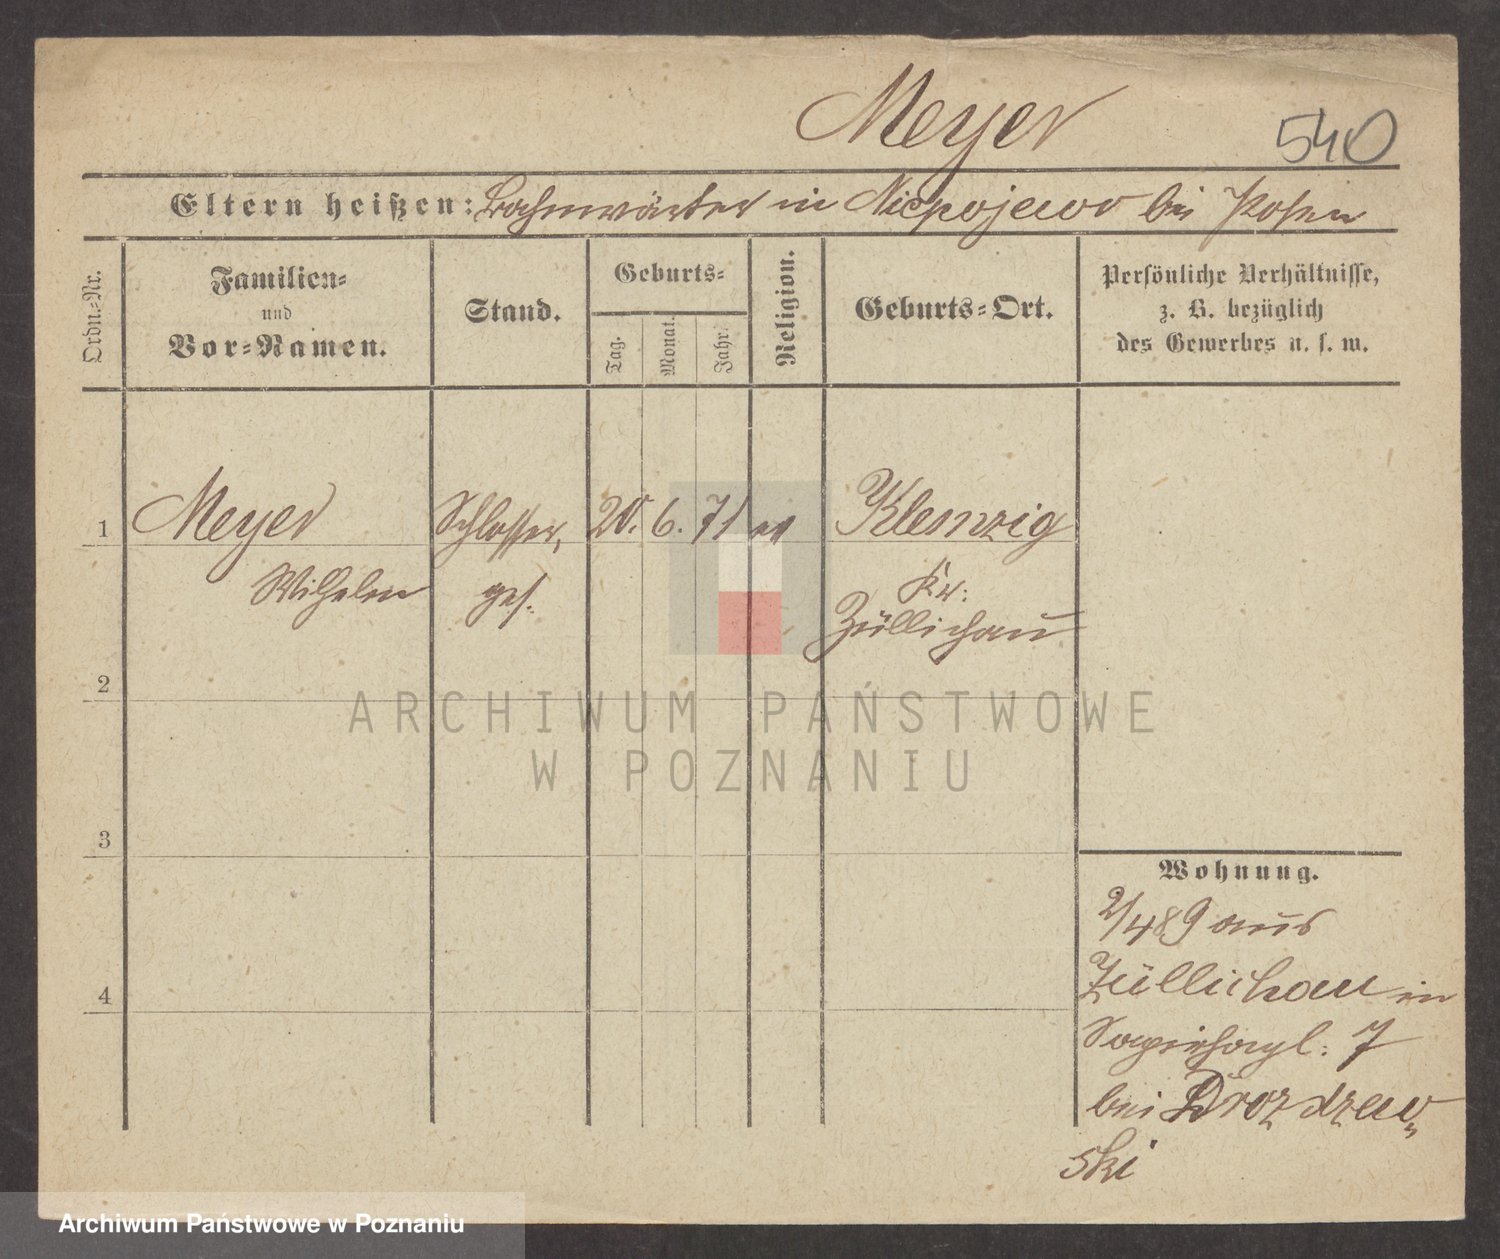 Meyer
540
Eltern heißen: Bahnwärter in Niepojewo bei Posen
Ordn.-Nr.
Familien-
und
Vor-Namen.
Stand.
Geburts-
Tag.
Monat.
Jahr.
Religion.
Geburts-Ort.
Persönliche Verhältnisse,
z. B. bezüglich
des Gewerbes u. s. w.
1 Meyer Schlosser, 20. 6. 71 ev Klemzig
Wilhelm ges. Kr.
Züllichau
2
3
4
Wohnung.
2/4 89 aus
Züllichau in
Sapiehapl. 7
bei Drozdzew,
ski
ARCHIWUM PAŃSTWOWE
W POZNANIU
Archiwum Państwowe w Poznaniu